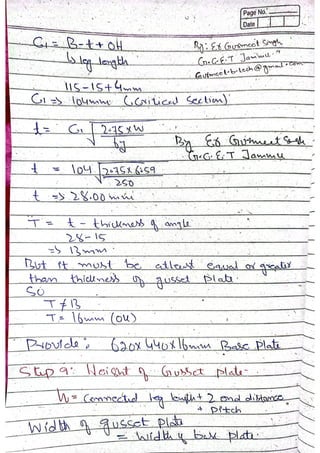 Page No.
Date
C₁ = B-t+OH
By: Er Gurmeet Singh
↳ leg length
G.C.E.T Jammu
Gurmeet.b.tech@gmail.com
115-15+4mm
C₁ => 104mm (Critical Section)
t = C₁ √2.75×W/fy
By Er Gurmeet Singh
G.C.E.T Jammu
t = 104 √2.75×6.59/250
t => 28.00 mm
T = t - thickness of angle
28-15
=> 13mm.
But it must be atleast equal or greater
than thickness of gusset plate.
SO
T ≠ 13
T = 16mm (OK)
Provide: 620×440×16mm Base Plate
Step 9: Height of Gusset plate-
h = connected leg length + 2 end distance
+ Pitch
Width of gusset plate
= Width of base plate.